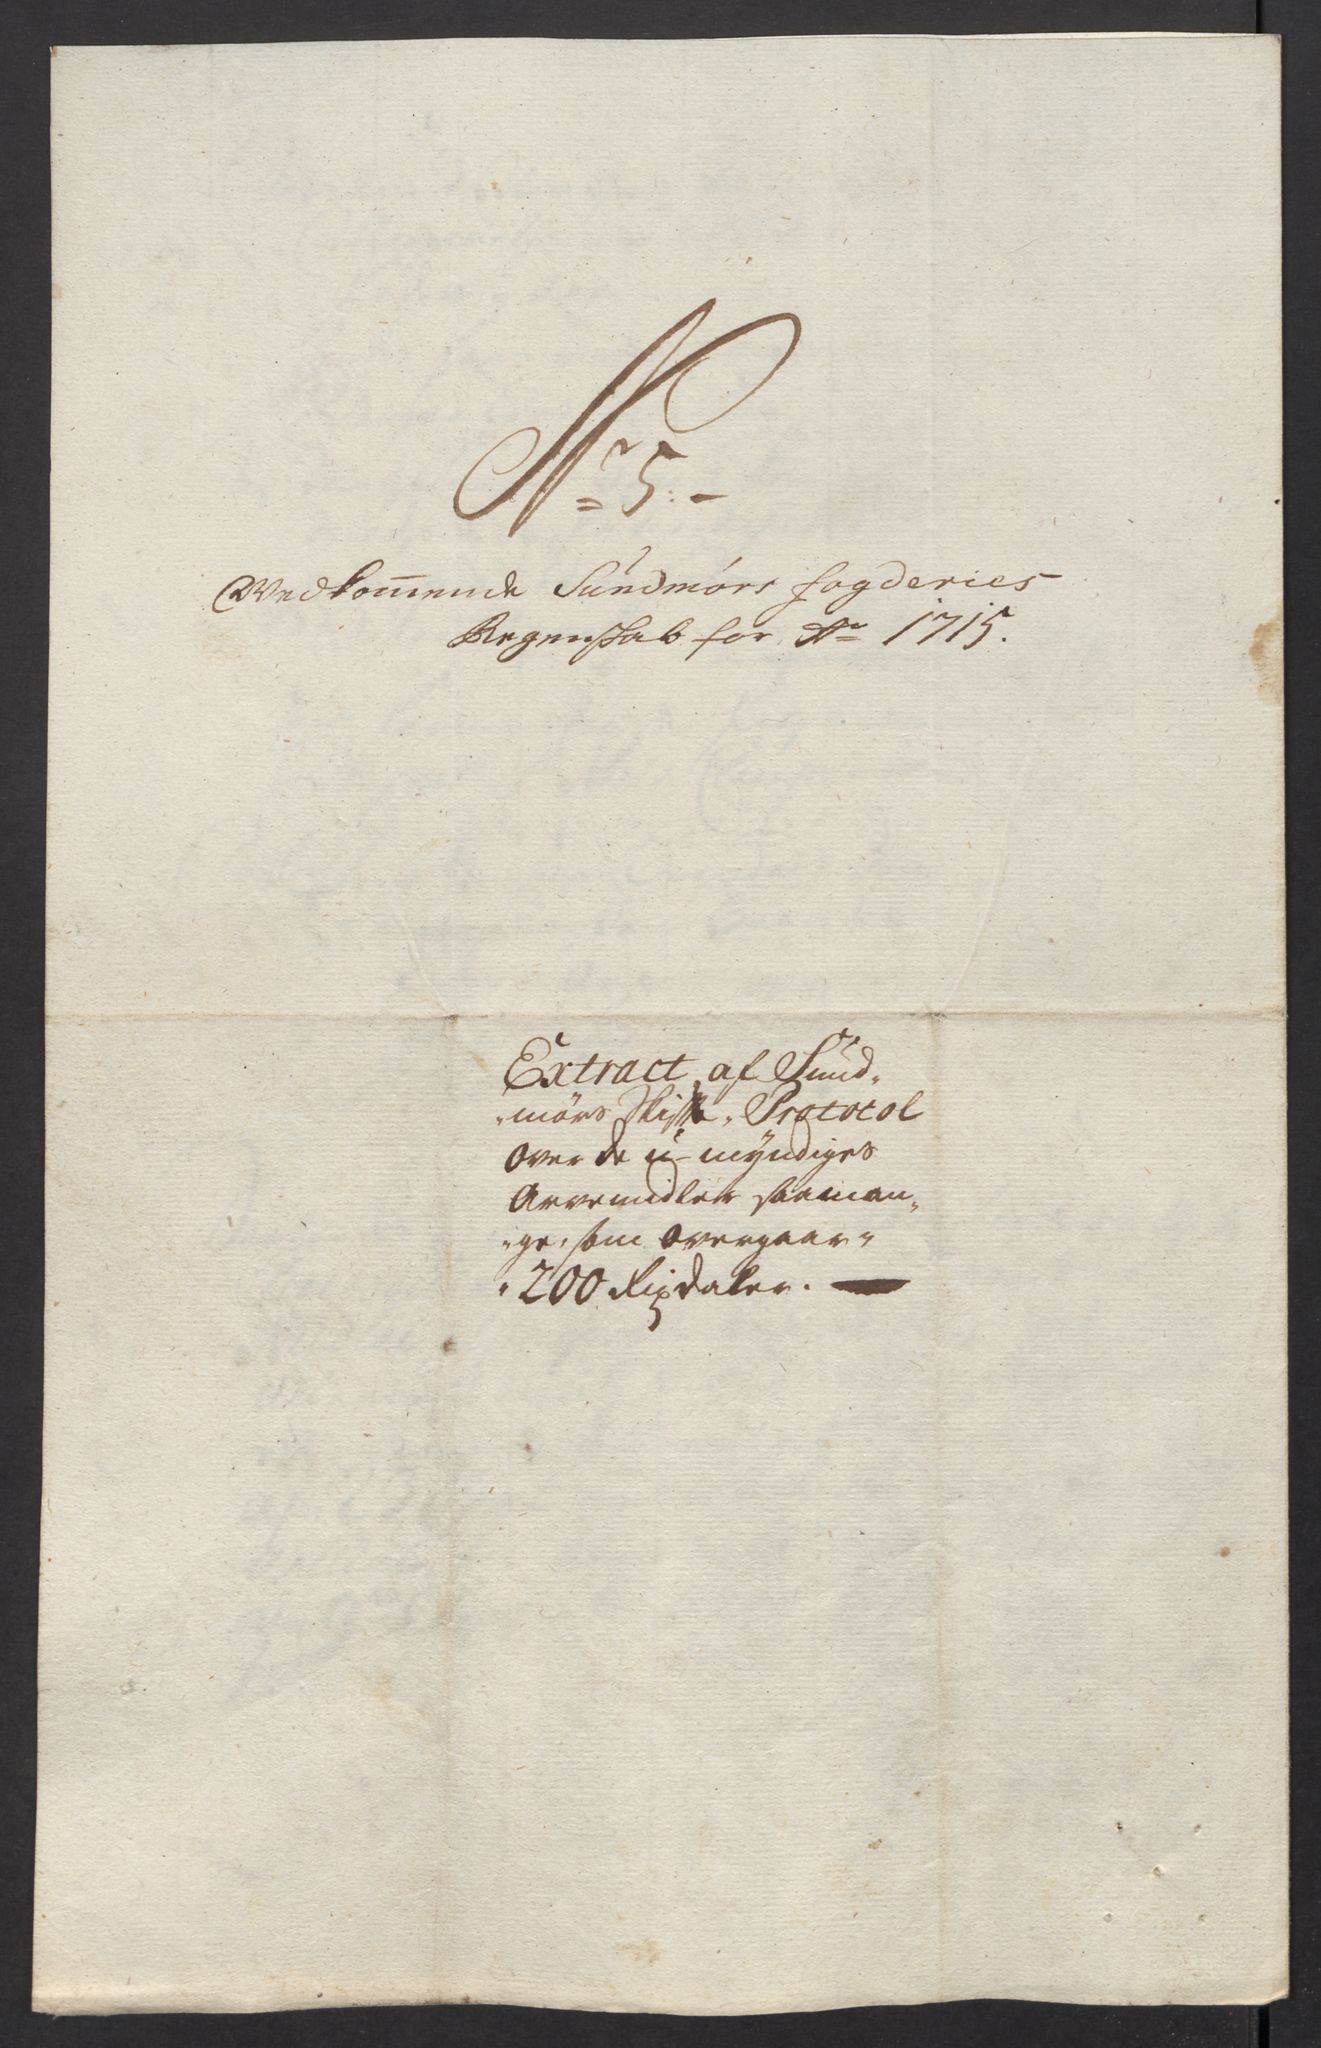 No 5.
Vedkom̄ende Sundmørs fogderies
Regenskab for Ao 1715.
Extract af Sund-
mørs Skifte Protocol
over de u-myndiges
Arvemidler saaman-
ge, som overgaar
200 Rixdaler.